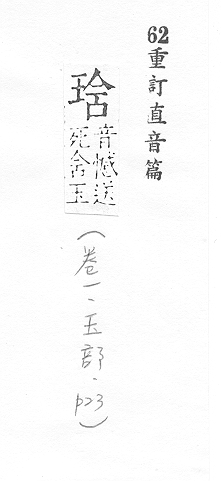 62重訂直音篇
琀
音憾送
死舍玉
(卷一、玉部、p23)